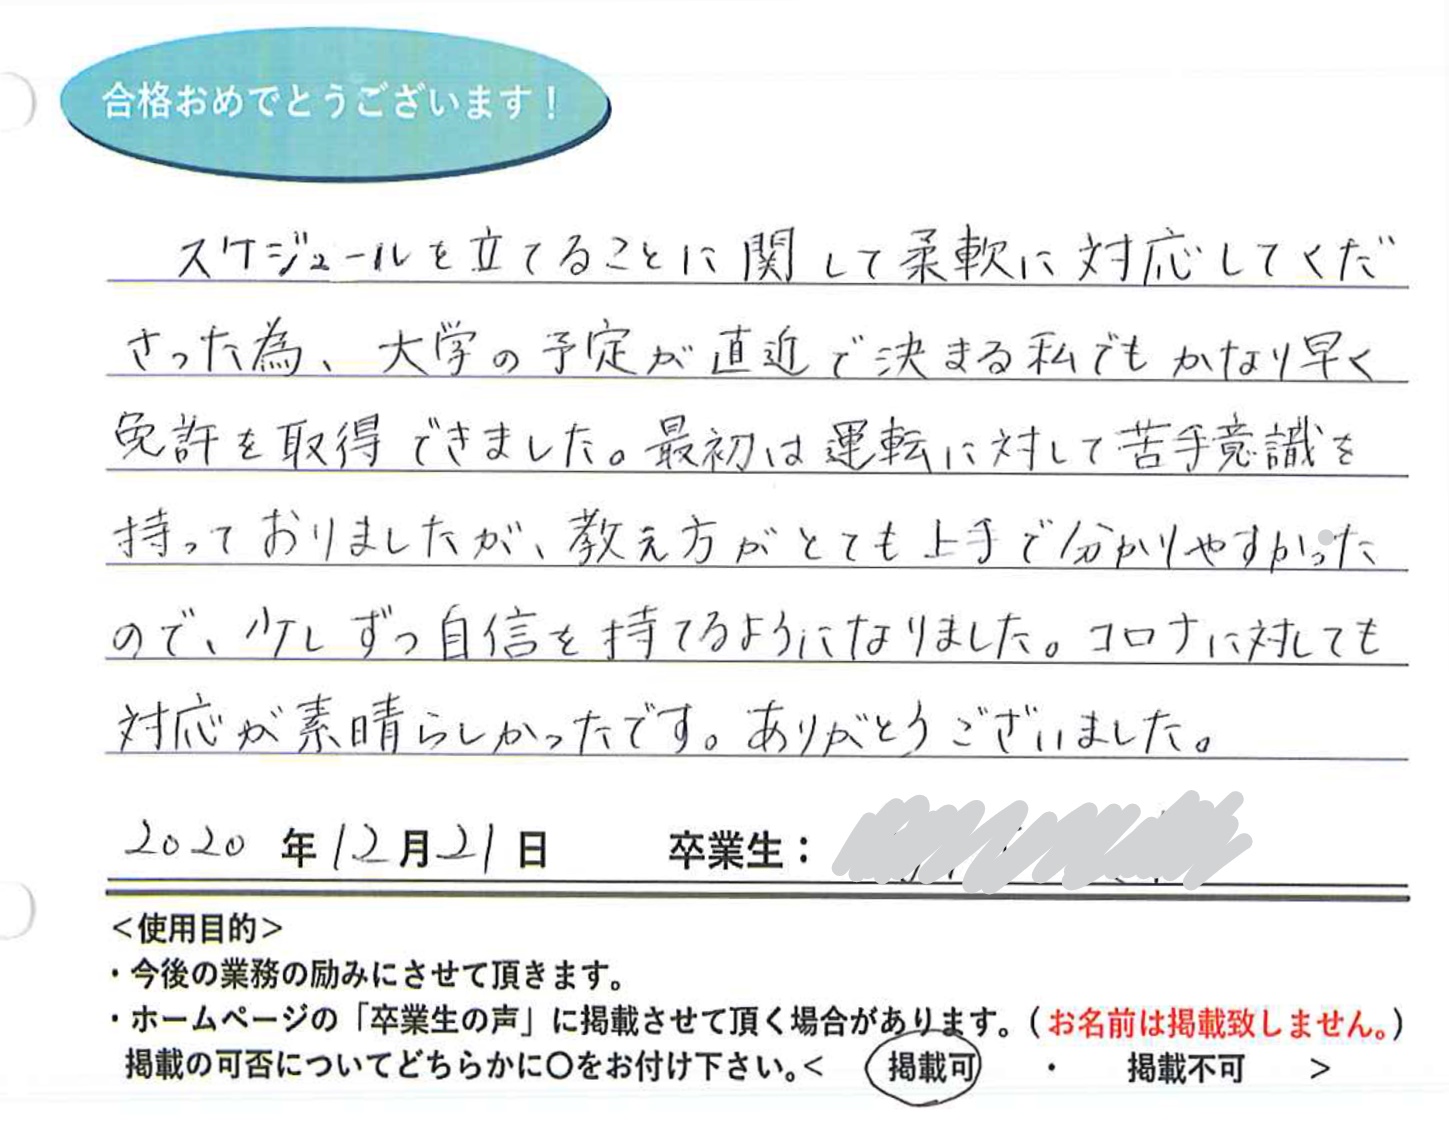 合格おめでとうございます！
スケジュールを立てることに関して柔軟に対応してくだ
さった為、大学の予定が直近で決まる私でもかなり早く
免許を取得できました。最初は運転に対して苦手意識を
持っておりましたが、教え方がとても上手で分かりやすかった
ので、少しずつ自信を持てるようになりました。コロナに対しても
対応が素晴らしかったです。ありがとうございました。
2020年12月21日 卒業生：
＜使用目的＞
・今後の業務の励みにさせて頂きます。
・ホームページの「卒業生の声」に掲載させて頂く場合があります。（お名前は掲載致しません。）
掲載の可否についてどちらかに〇をお付け下さい。＜ 掲載可 ・ 掲載不可 ＞